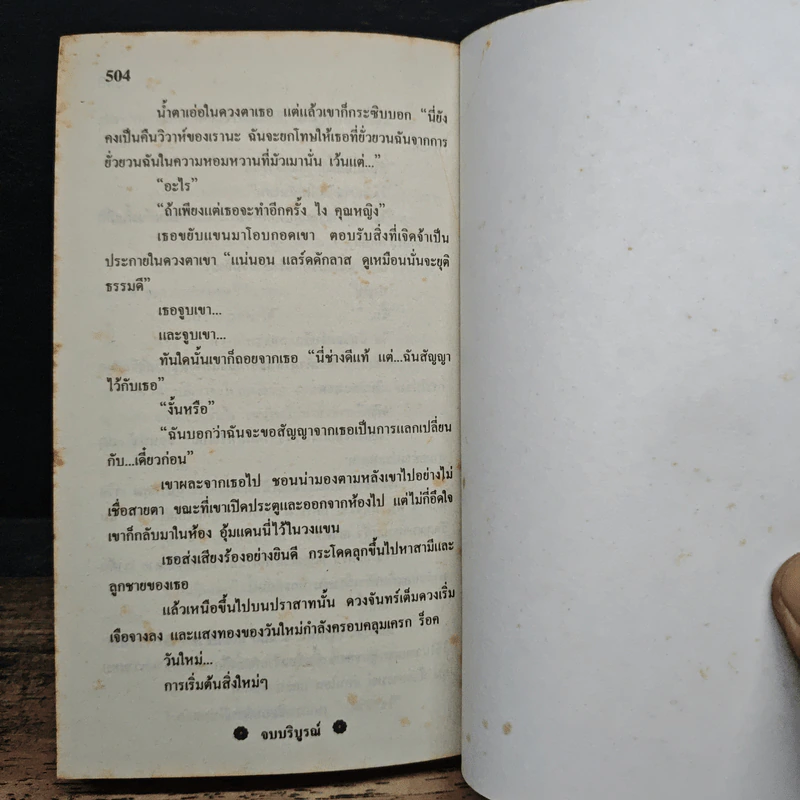 504
น้ำตาเอ่อในดวงตาเธอ แต่แล้วเขาก็กระซิบบอก “นี่ยัง
คงเป็นคืนวิวาห์ของเรานะ ฉันจะยกโทษให้เธอที่ยั่วยวนฉันจากการ
ยั่วยวนฉันในความหอมหวานที่มัวเมานั่น เว้นแต่...”
“อะไร”
“ถ้าเพียงแต่เธอจะทำอีกครั้ง ไง คุณหญิง”
เธอขยับแขนมาโอบกอดเขา ตอบรับสิ่งที่เจิดจ้าเป็น
ประกายในดวงตาเขา “แน่นอน แลร์ดดักลาส ดูเหมือนนั่นจะยุติ
ธรรมดี”
เธอจูบเขา...
และจูบเขา...
ทันใดนั้นเขาก็ถอยจากเธอ “นี่ช่างดีแท้ แต่...ฉันสัญญา
ไว้กับเธอ”
“งั้นหรือ”
“ฉันบอกว่าฉันจะขอสัญญาจากเธอเป็นการแลกเปลี่ยน
กับ...เดี๋ยวก่อน”
เขาผละจากเธอไป ชอนน่ามองตามหลังเขาไปอย่างไม่
เชื่อสายตา ขณะที่เขาเปิดประตูและออกจากห้องไป แต่ไม่กี่อึดใจ
เขาก็กลับมาในห้อง อุ้มแดนนี่ไว้ในวงแขน
เธอส่งเสียงร้องอย่างยินดี กระโดดลุกขึ้นไปหาสามีและ
ลูกชายของเธอ
แล้วเหนือขึ้นไปบนปราสาทนั้น ดวงจันทร์เต็มดวงเริ่ม
เจือจางลง และแสงทองของวันใหม่กำลังครอบคลุมเครก ร็อค
วันใหม่...
การเริ่มต้นสิ่งใหม่ๆ
จบบริบูรณ์